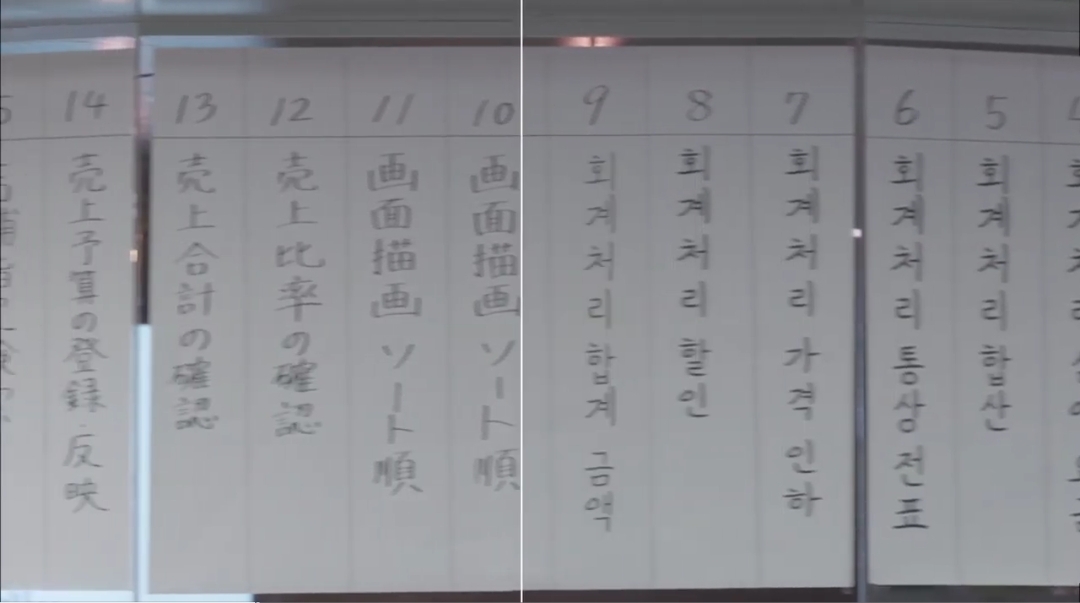 5 회계처리 합산
6 회계처리 통상 전표
7 회계처리 가격 인하
8 회계처리 할인
9 회계처리 합계 금액
10 画面描画 ソート順
11 画面描画 ソート順
12 売上比率の確認
13 売上合計の確認
14 売上予算の登録・反映